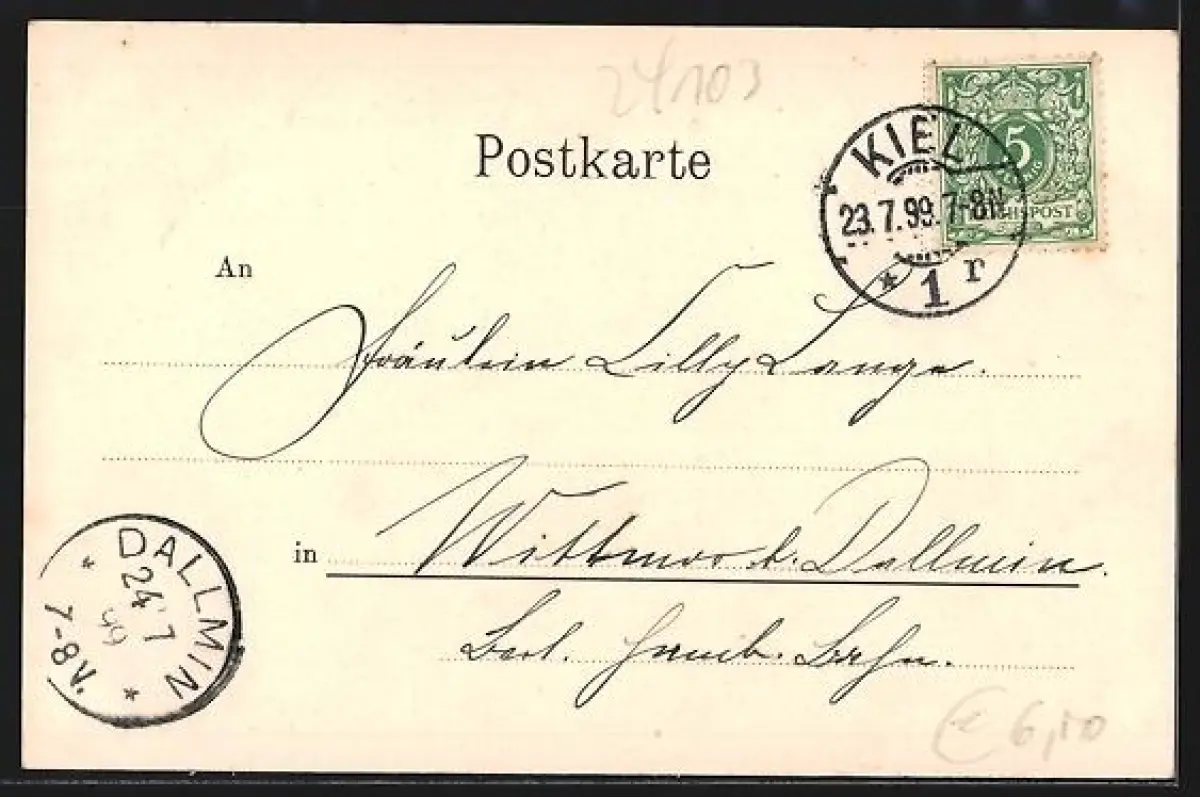 24103
Postkarte
5
REICHSPOST
KIEL
23.7.99.7-8N
* 1 r
An
Fräulein Lilly Lange.
in Wittmoor b. Dallmin.
Berl. Hamb. Bahn.
DALLMIN
24 7
99
* 7-8N. *
€ 6,10